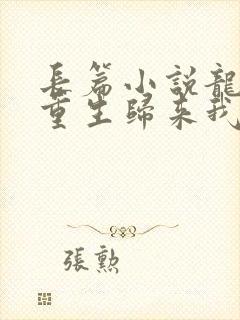 長篇小説龍
重生歸來我
張勲